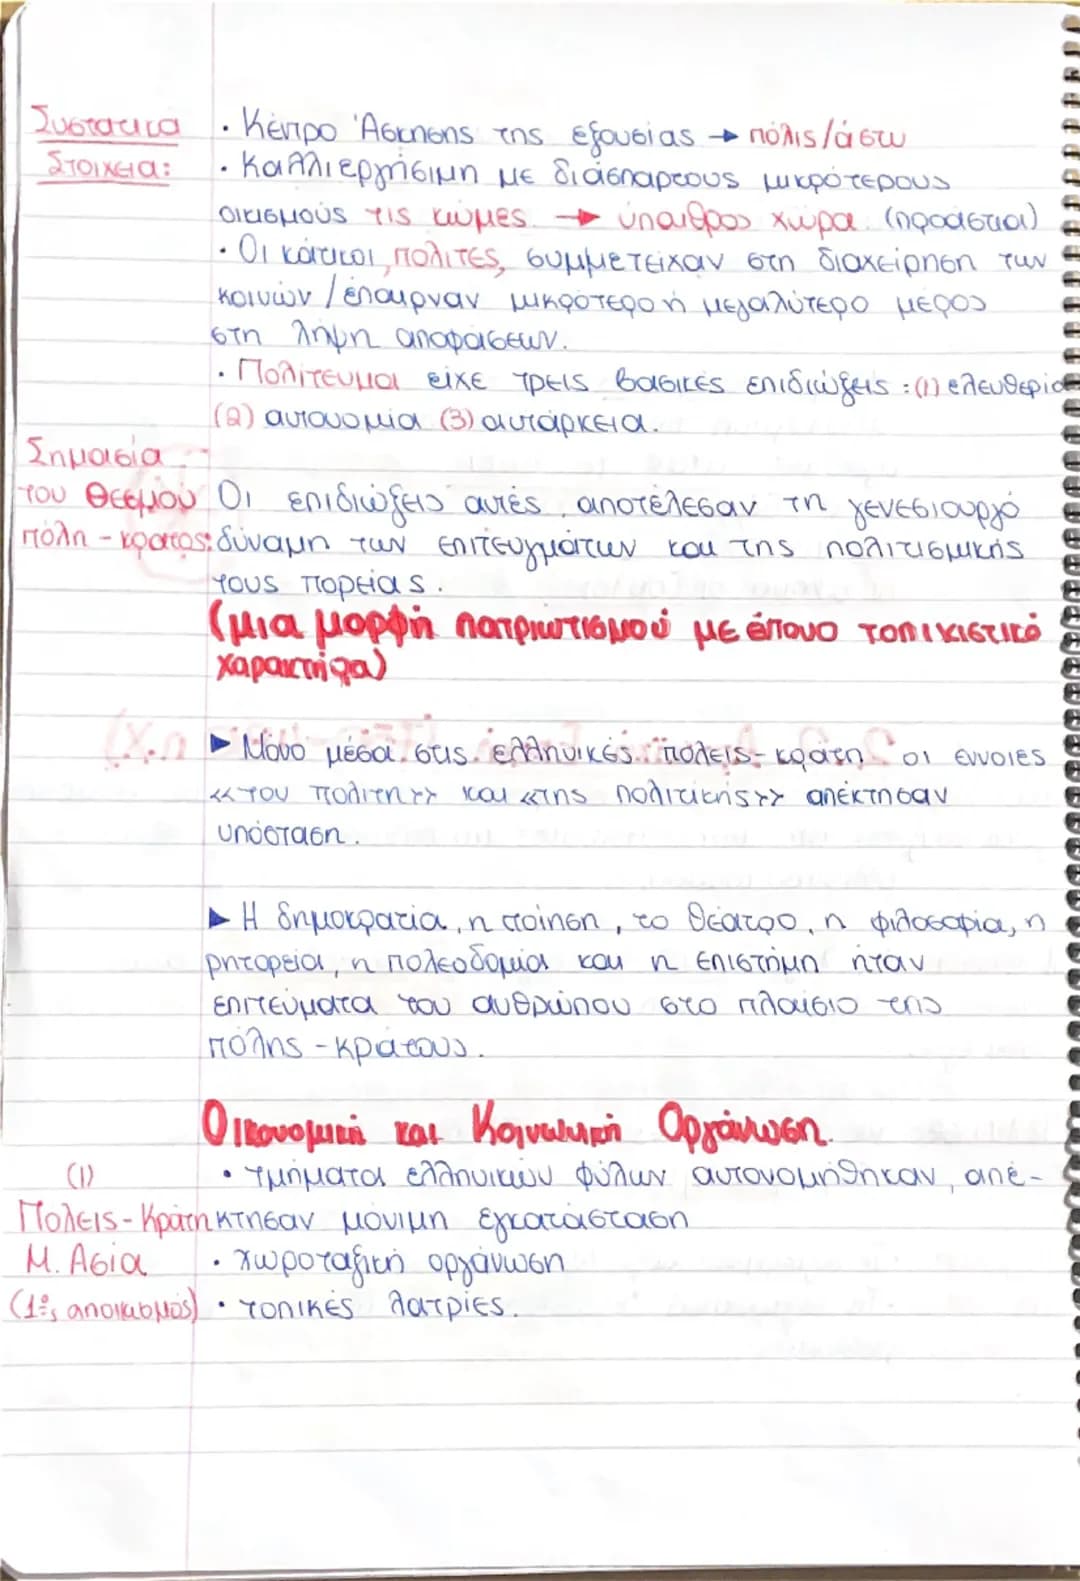 Συστατικά
Στοιχεία:
· Κέντρο Άσκησης της εξουσίας → πόλις/άστυ
· Καλλιεργήσιμη με διάσπαρτους μικρότερους
οικισμούς τις κώμες. → ύπαιθρος χώρα. (προάστια)
· Οι κάτοικοι, πολίτες, συμμετείχαν στη διαχείρηση των
κοινών / έπαιρναν μικρότερο ή μεγαλύτερο μέρος
στη λήψη αποφάσεων.
· Πολίτευμα είχε τρεις βασικές επιδιώξεις : (1) ελευθερία
(2) αυτονομία (3) αυτάρκεια.
Σημασία
του Θεσμού
πόλη - κράτος:
Οι επιδιώξεις αυτές, αποτέλεσαν τη γενεσιουργό
δύναμη των επιτευγμάτων και της πολιτισμικής
τους πορείας.
(μια μορφή πατριωτισμού με έπονο τοπικιστικό
χαρακτήρα)
▶ Μόνο μέσα στις ελληνικές πόλεις - κράτη οι έννοιες
«του πολίτη» και «της πολιτικής» απέκτησαν
υπόσταση.
▶ Η δημοκρατία, η ποίηση, το θέατρο, η φιλοσοφία, η
ρητορεία, η πολεοδομία και η επιστήμη ήταν
επιτεύματα του ανθρώπου στο πλαίσιο της
πόλης - κράτους.
Οικονομική και Κοινωνική Οργάνωση.
(1)
Πολεις - Κράτη
Μ. Ασία
(1ος αποικισμός)
· τμήματα ελληνικών φύλων αυτονομήθηκαν, απέ-
κτησαν μόνιμη εγκατάσταση
· χωροταξική οργάνωση
· τοπικές λατρίες.